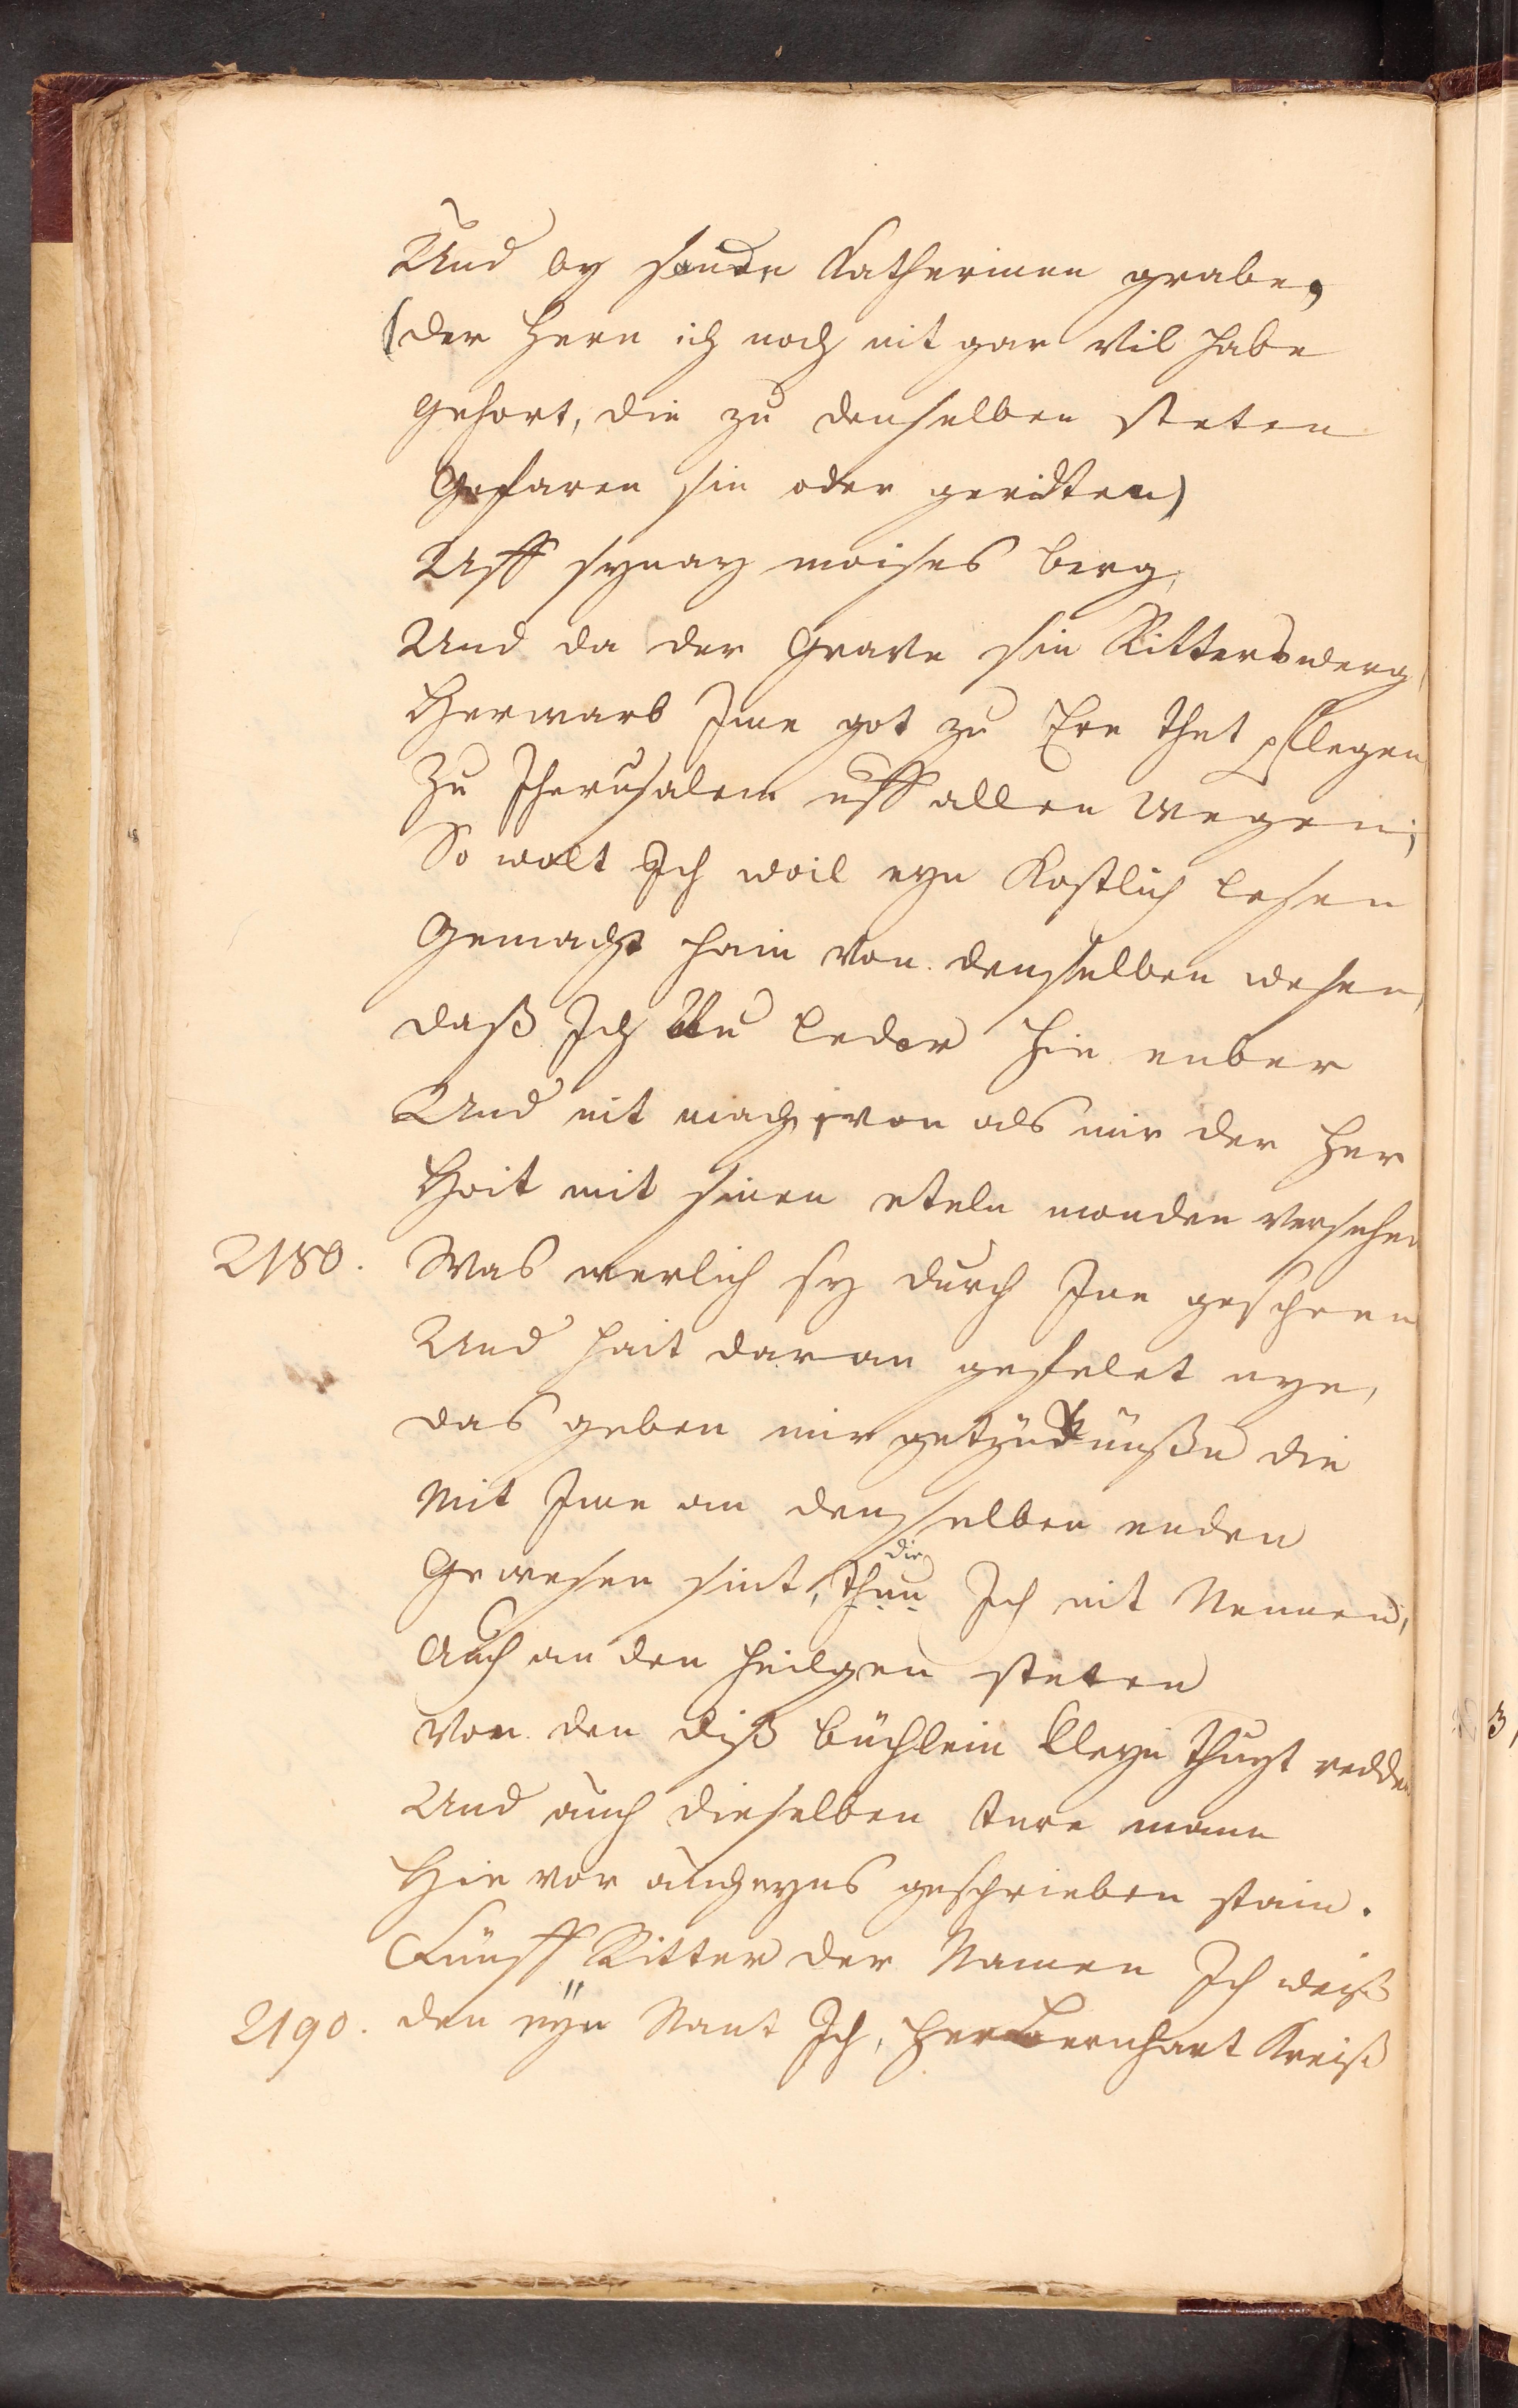 Und by sande Katherinen grabe,
(der Hern ich noch nit gar vil habe
Gehort, die zu denselben steten
Gefaren sin oder geridten)
Uff synay moises berg,
Und da der Grave sin Ritterswerg,
Herwarb Ime got zu Ere thet pflegen
Zu Jherusalem uff allen wegen;
So wolt Ich woil eyn Kostlich lesen
Gemacht hain von denselben wesen,
daß Ich nu leder hie enber
Und nit mach, wan als mir der Her
Hoit mit sinen eteln monden versehen
2180. Was werlich sy durch Ine gescheen
Und hait daran gefelet nye,
das geben mir getzüknüße die
Mit Ime an denselben enden
Gewesen sint, die thun Ich nit Nennen,
Auch an den heilgen steten
Von den diß büchlein kleyn thuyt redden
Und auch dieselben ture mann
Hie vor auch eyns geschrieben stain.
Fünff Ritter der Namen Ich weiß
2190. den eyn Nant Ich, Her Bernhart Kreiß
3,